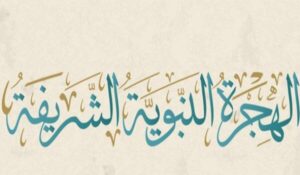 الهِجرَةُ النَّبَوِيَّةُ الشَّرِيفَةُ